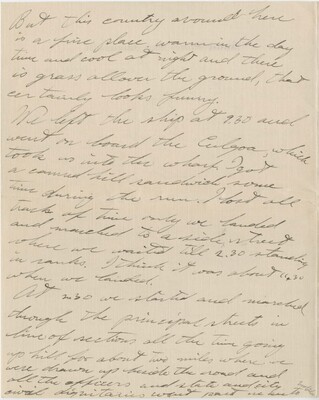 But this country around here
is a fine place warm in the day
time and cool at night and there
is grass all over the ground, that
certainly looks funny.
We left the ship at 9.30 and
went on board the Eulgoa, which
took us into the wharf. I got
a canned bill sandwich some
time during the run. I lost all
track of time only we landed
and marched to a side street
where we waited till 2.30 standing
in ranks. I think it was about
when we landed.
At 2.30 we started and marched
through the principal streets in
line of sections all the time going
up hill for about two miles where we
were drawn up beside the road and
all the officers and state and city
civil dignitaries went past